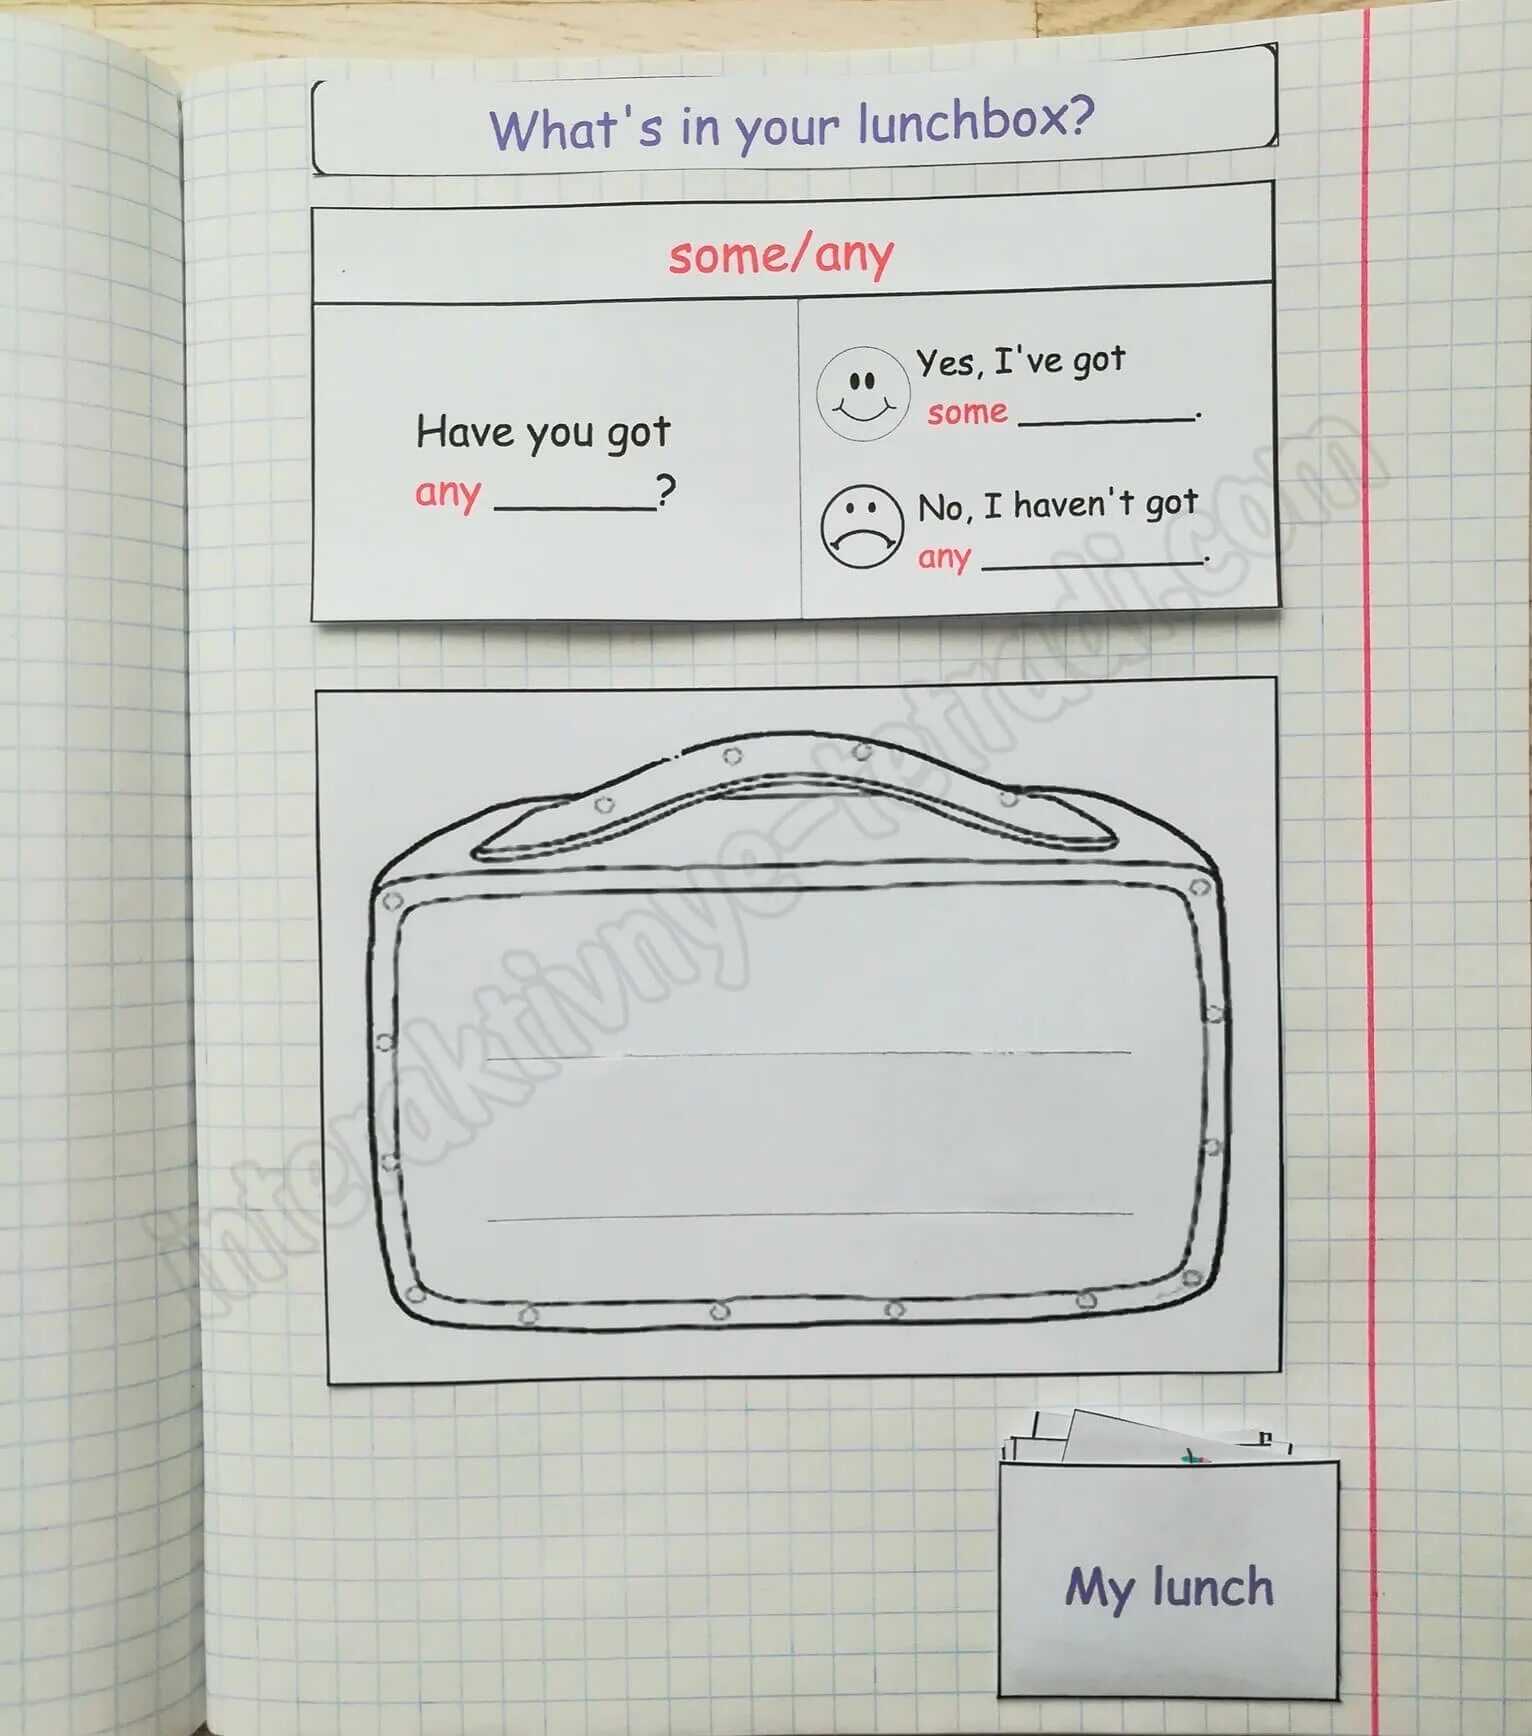 What's in your lunchbox?
some/any
Have you got
any ________?
Yes, I've got
some _________.
No, I haven't got
any ___________.
interaktivnye-tetradi.com
My lunch